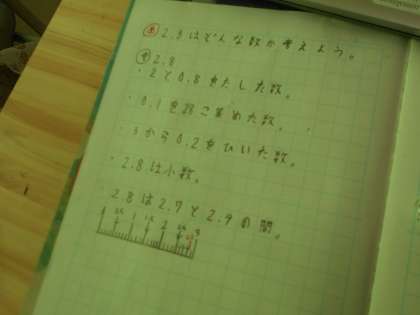 2.8はどんな数か考えよう。
2.8
・2と0.8をたした数。
・0.1を28こ集めた数。
・3から0.2をひいた数。
・2.8は小数。
・2.8は2.7と2.9の間。
1 2 3